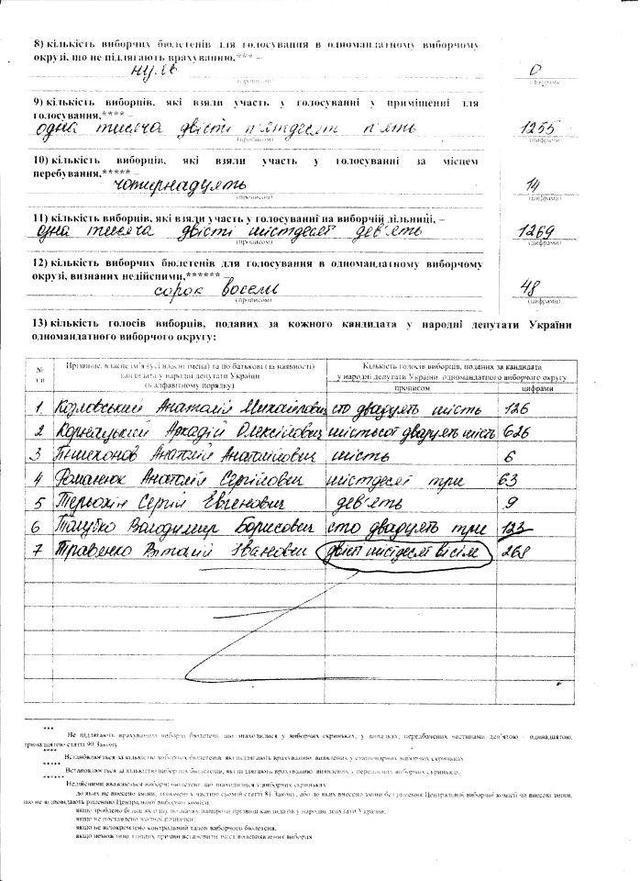 8) кількість виборчих бюлетенів для голосування в одномандатному виборчому
округу, що не підлягають врахуванню,*** –
нуль 0
(прописом) (цифрами)
9) кількість виборців, які взяли участь у голосуванні у приміщенні для
голосування,**** –
одна тисяча двісті п'ятдесят п'ять 1255
(прописом) (цифрами)
10) кількість виборців, які взяли участь у голосуванні за місцем
перебування,*****
чотирнадцять 14
(цифрами)
11) кількість виборців, які взяли участь у голосуванні на виборчій дільниці, –
одна тисяча двісті шістдесят дев'ять 1269
(прописом) (цифрами)
12) кількість виборчих бюлетенів для голосування в одномандатному виборчому
окрузі, визнаних недійсними,****** –
сорок восем 48
(прописом) (цифрами)
13) кількість голосів виборців, поданих за кожного кандидата у народні депутати України
одномандатного виборчого округу:
№ Прізвище, власне ім'я (усі власні імена) та по батькові (за наявності) Кількість голосів виборців, поданих за кандидата
кандидата у народні депутати України у народні депутати України одномандатного виборчого округу
(в алфавітному порядку) прописом цифрами
1 Козловський Анатолій Михайлович сто двадцять шість 126
2 Корнацький Аркадій Олексійович шістьсот двадцять шість 626
3 Анатолій Анатолійович шість 6
4 Романюк Анатолій Сергійович шістдесят три 63
5 Терьохін Сергій Евгенович дев'ять 9
6 Володимир Борисович сто двадцять три 123
7 Травенко Віталій Іванович двісті шістдесят вісім 268
***
Не підлягають врахуванню виборчі бюлетені, що знаходилися у виборчих скриньках, у випадках, передбачених частинами дев'ятою - одинадцятою,
статті 90 Закону.
****
Встановлюється за кількістю виборчих бюлетенів, які підлягають врахуванню, виявлених у стаціонарних виборчих скриньках.
*****
Встановлюється за кількістю виборчих бюлетенів, які підлягають врахуванню, виявлених у переносних виборчих скриньках.
******
Недійсними вважаються виборчі бюлетені, що знаходилися у виборчих скриньках:
якщо не поставлено жодної позначки;
якщо не відокремлено контрольний талон виборчого бюлетеня;